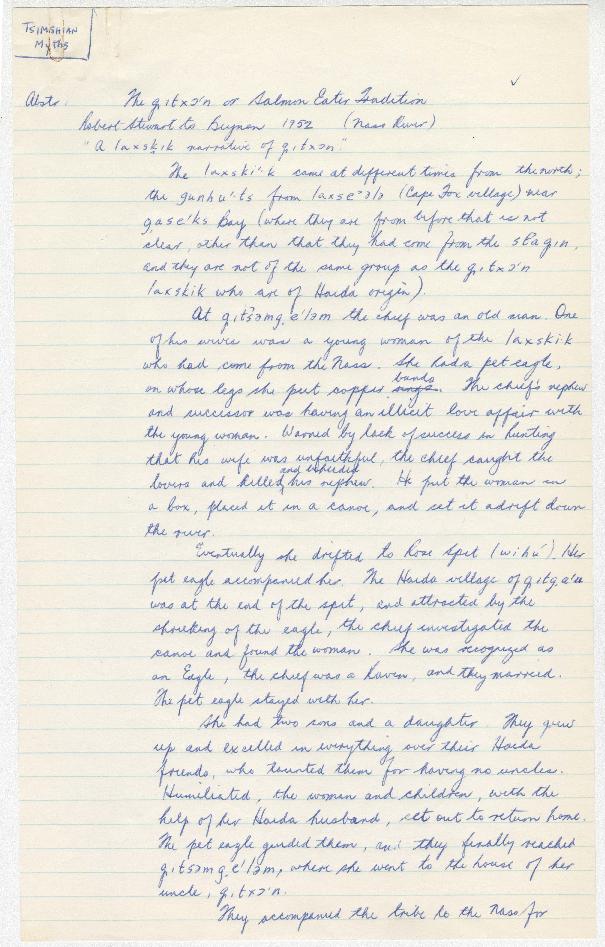 TSIMSHIAN
Myths
Abstr. The g̣ıtxɔ'n or Salmon Eater Tradition
Robert Stewart to Beynon 1952 (Nass River)
"A laxskık narrative of g̣ıtxɔn."
The laxski'·k came at different times from the north;
the gunhu'·ts from laxse'ələ (Cape Fox village) near
gase'ks Bay (where they are from before that is not
clear, other than that they had come from the stagın,
and they are not of the same group as the g̣ıtxɔ'n
laxskik who are of Haida origin).
At g̣ıtsəmg̣e'ləm the chief was an old man. One
of his wives was a young woman of the laxski·k
who had come from the Nass. She had a pet eagle,
on whose legs she put copper rings bands. The chief's nephew
and successor was having an illicit love affair with
the young woman. Warned by lack of success in hunting
that his wife was unfaithful, the chief caught the
lovers and killed and beheaded his nephew. He put the woman in
a box, placed it in a canoe, and set it adrift down
the river.
Eventually she drifted to Rose Spit (wi hu'). Her
pet eagle accompanied her. The Haida village of
was at the end of the spit, and attracted by the
shrieking of the eagle, the chief investigated the
canoe and found the woman. She was recognized as
an Eagle, the chief was a Raven, and they married.
The pet eagle stayed with her.
She had two sons and a daughter. They grew
up and excelled in everything over their Haida
friends, who taunted them for having no uncles.
Humiliated, the woman and children, with the
help of her Haida husband, set out to return home.
The pet eagle guided them, and they finally reached
g̣ıtsəmg̣e'ləm, where she went to the house of her
uncle, g̣ıtxɔ'n.
They accompanied the tribe to the Nass for